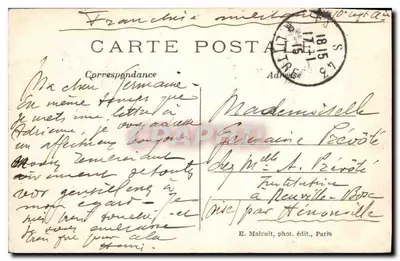 Franchise militaire
CARTE POSTALE
Correspondance
Adresse
18 15
17-1
15
S 43
Ma chère Germaine
En même temps que
je mets une lettre à
Adrienne, je vous adresse
un affectueux bonjour
vous remerciant
vivement de toutes
vos gentillesses à
mon égard. Je
et
de vous
Mademoiselle
Germaine Prévôté
chez Melle A. Prévôté
Institutrice
à Neuville-Bosc
(Oise) par Hénonville
E. Malcuit, phot. édit., Paris